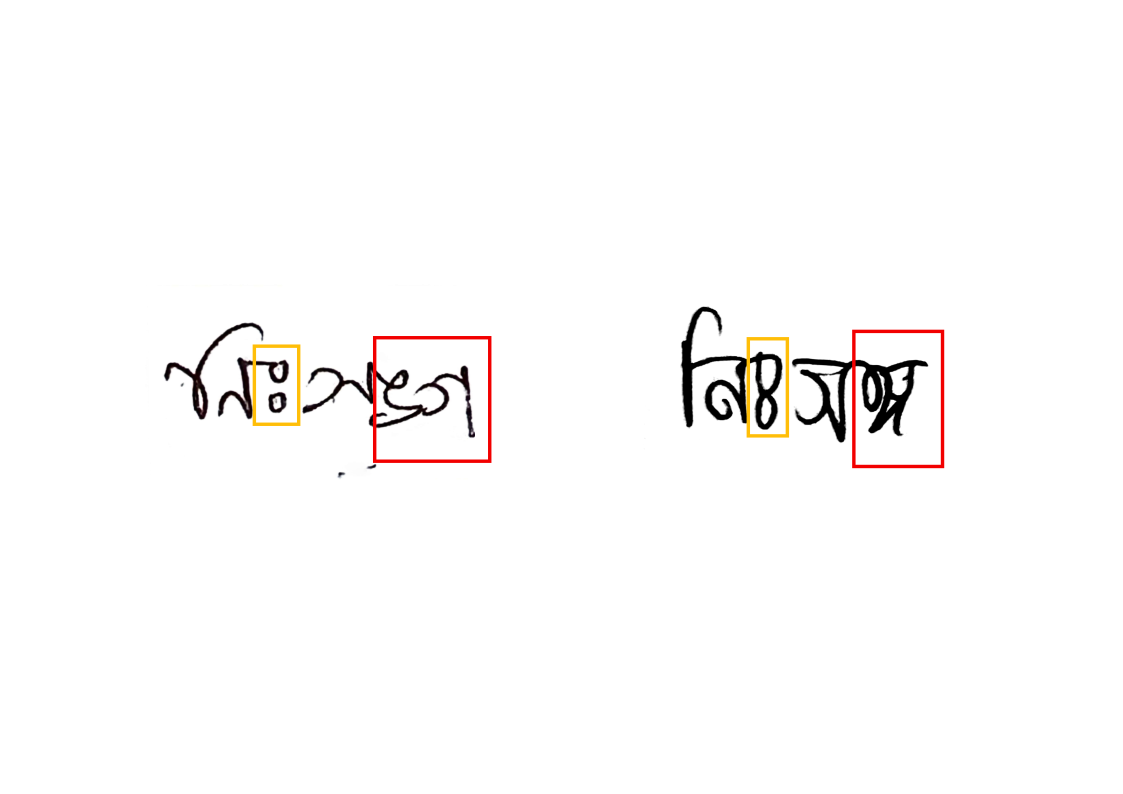 নিঃসঙ্গ নিঃসঙ্গ